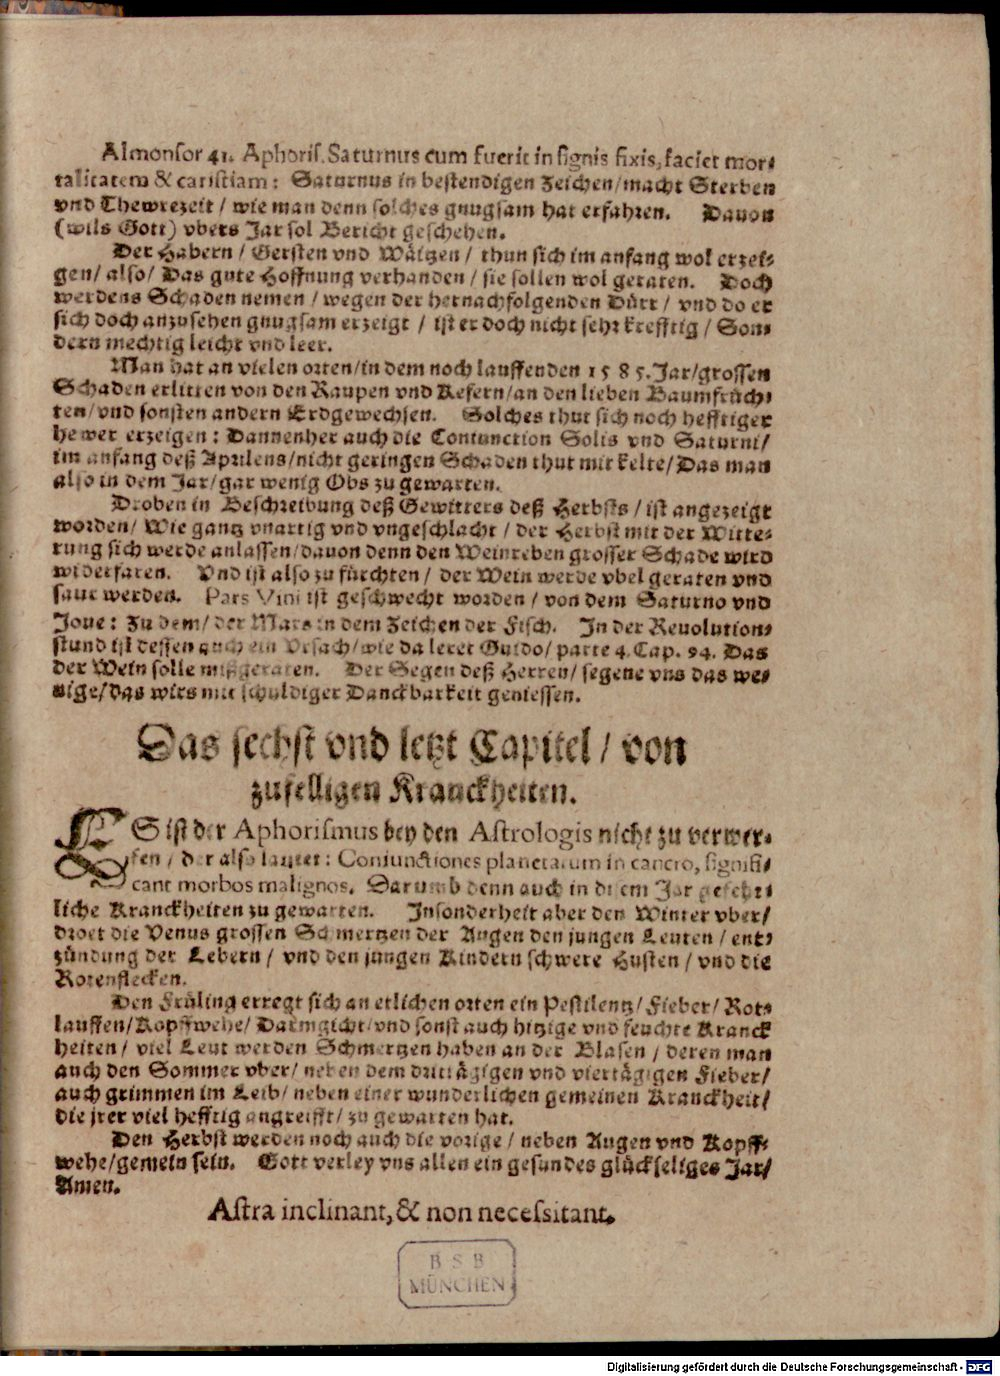 Almonsor 41. Aphoris. Saturnus cum fuerit in signis fixis, faciet mor-
talitatem & caristiam: Saturnus in bestendigen Zeichen/macht Sterben
vnd Thewrezeit / wie man denn solches gnugsam hat erfahren. Dauon
(wils Gott) vbers Jar sol Bericht geschehen.
Der Habern / Gersten vnd Wäitzen / thun sich im anfang wol erzei-
gen/ also/ Das gute Hoffnung verhanden / sie sollen wol geraten. Doch
werdens Schaden nemen / wegen der hernachfolgenden Dürr / vnd do er
sich doch anzusehen gnugsam erzeigt / ist er doch nicht sehr krefftig / Son-
dern mechtig leicht vnd leer.
Man hat an vielen orten/in dem noch lauffenden 1585. Jar/grossen
Schaden erlitten von den Raupen vnd Kefern/an den lieben Baumfrüch-
ten/vnd sonsten andern Erdgewechsen. Solches thut sich noch hefftiger
hewer erzeigen: Dannenher auch die Coniunction Solis vnd Saturni/
im anfang deß Aprilens/nicht geringen Schaden thut mit kelte/Das man
also in dem Jar/gar wenig Obs zu gewarten.
Droben in Beschreibung deß Gewitters deß Herbsts / ist angezeigt
worden/ Wie gantz vnartig vnd vngeschlacht / der Herbst mit der Witte-
rung sich werde anlassen/dauon denn den Weinreben grosser Schade wird
widerfaren. Vnd ist also zu fürchten / der Wein werde vbel geraten vnd
saur werden. Pars Vini ist geschwecht worden / von dem Saturno vnd
Joue: Zu dem/ der Mars in dem Zeichen der Fisch. In der Reuolution-
stund ist dessen auch ein Vrsach/wie da leret Guido/ parte 4. Cap. 94. Das
der Wein solle mißgeraten. Der Segen deß Herren/ segene vns das we-
nige/das wirs mit schuldiger Danckbarkeit geniessen.
Das sechst vnd letzt Capitel / von
zufelligen Kranckheiten.
ES ist der Aphorismus bey den Astrologis nicht zu verwer-
fen / der also lautet: Coniunctiones planetarum in cancro, signifi-
cant morbos malignos. Darumb denn auch in disem Jar gefehr-
liche Kranckheiten zu gewarten. Insonderheit aber den Winter vber/
droet die Venus grossen Schmertzen der Augen den jungen Leuten / ent-
zündung der Lebern / vnd den jungen Kindern schwere Husten / vnd die
Rotenflecken.
Den Früling erregt sich an etlichen orten ein Pestilentz/ Fieber/ Rot-
lauffen/Kopffwehe/ Darmgicht/vnd sonst auch hitzige vnd feuchte Kranck
heiten / viel Leut werden Schmertzen haben an der Blasen / deren man
auch den Sommer vber/ neben dem drittägigen vnd viertägigen Fieber/
auch grimmen im Leib/ neben einer wunderlichen gemeinen Kranckheit/
die jrer viel hefftig angreifft/ zu gewarten hat.
Den Herbst werden noch auch die vorige / neben Augen vnd Kopff-
wehe/gemein sein. Gott verley vns allen ein gesundes glückseliges Jar/
Amen.
Astra inclinant, & non necessitant.
BSB
MÜNCHEN
Digitalisierung gefördert durch die Deutsche Forschungsgemeinschaft - DFG